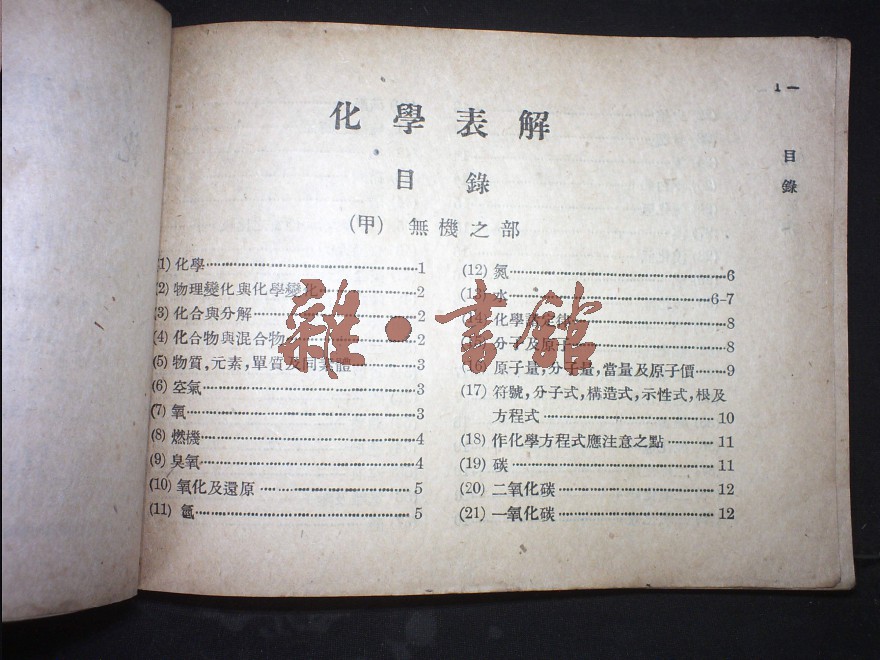 1—
目錄
化學表解
目錄
(甲) 無機之部
(1) 化學……1
(2) 物理變化與化學變化……2
(3) 化合與分解……2
(4) 化合物與混合物……2
(5) 物質,元素,單質及同素體……3
(6) 空氣……3
(7) 氧……3
(8) 燃機……4
(9) 臭氧……4
(10) 氧化及還原……5
(11) 氫……5
(12) 氮……6
(13) 水……6-7
(14) 化學定律……8
(15) 分子及原子……8
(16) 原子量,分子量,當量及原子價……9
(17) 符號,分子式,構造式,示性式,根及
方程式……10
(18) 作化學方程式應注意之點……11
(19) 碳……11
(20) 二氧化碳……12
(21) 一氧化碳……12
雜·書館